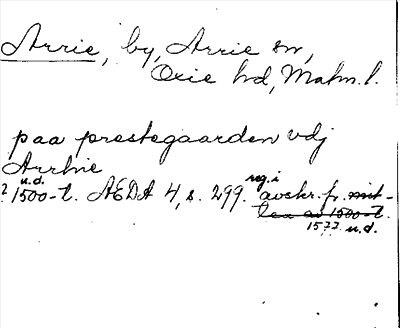 Arrie, by, Arrie sn,
Oxie hd, Malm. l.
paa prestegaarden vdj
Arrhie
? u.d. 1500-t. AEDA 4, s. 299. reg. i avskr. fr. mit-
ten av 1500-t.
1577 u.d.